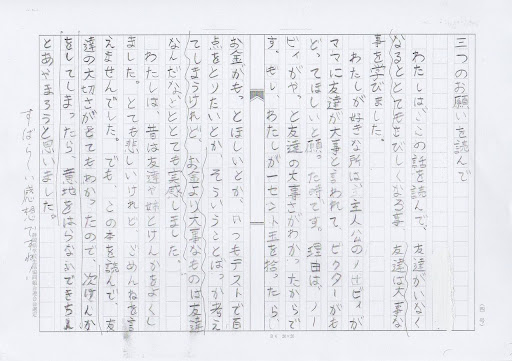 三つのお願いを読んで
わたしは、この話を読んで、友達がいなく
なるととてもさびしくなる事、友達は大事な
事を学びました。
わたしが好きな所は、主人公のノービィが
ママに友達が大事と言われて、ビクターがも
どってほしいと願った時です。理由は、ノー
ビィがやっと友達の大事さがわかったからで
す。もし、わたしが一セント玉を拾ったら、
お金がもっとほしいとか、いつもテストで百
点をとりたいとか、そういうことばっか考え
てしまうけれど、お金より大事なものは友達
なんだなととても実感しました。
わたしは、昔は友達や姉とけんかをよくし
ました。とても悲しいけれど、ごめんねを言
えませんでした。でも、この本を読んで、友
達の大切さがとてもわかったので、次けんか
をしてしまったら、意地をはらないできちん
とあやまろうと思いました。
すばらしい感想です